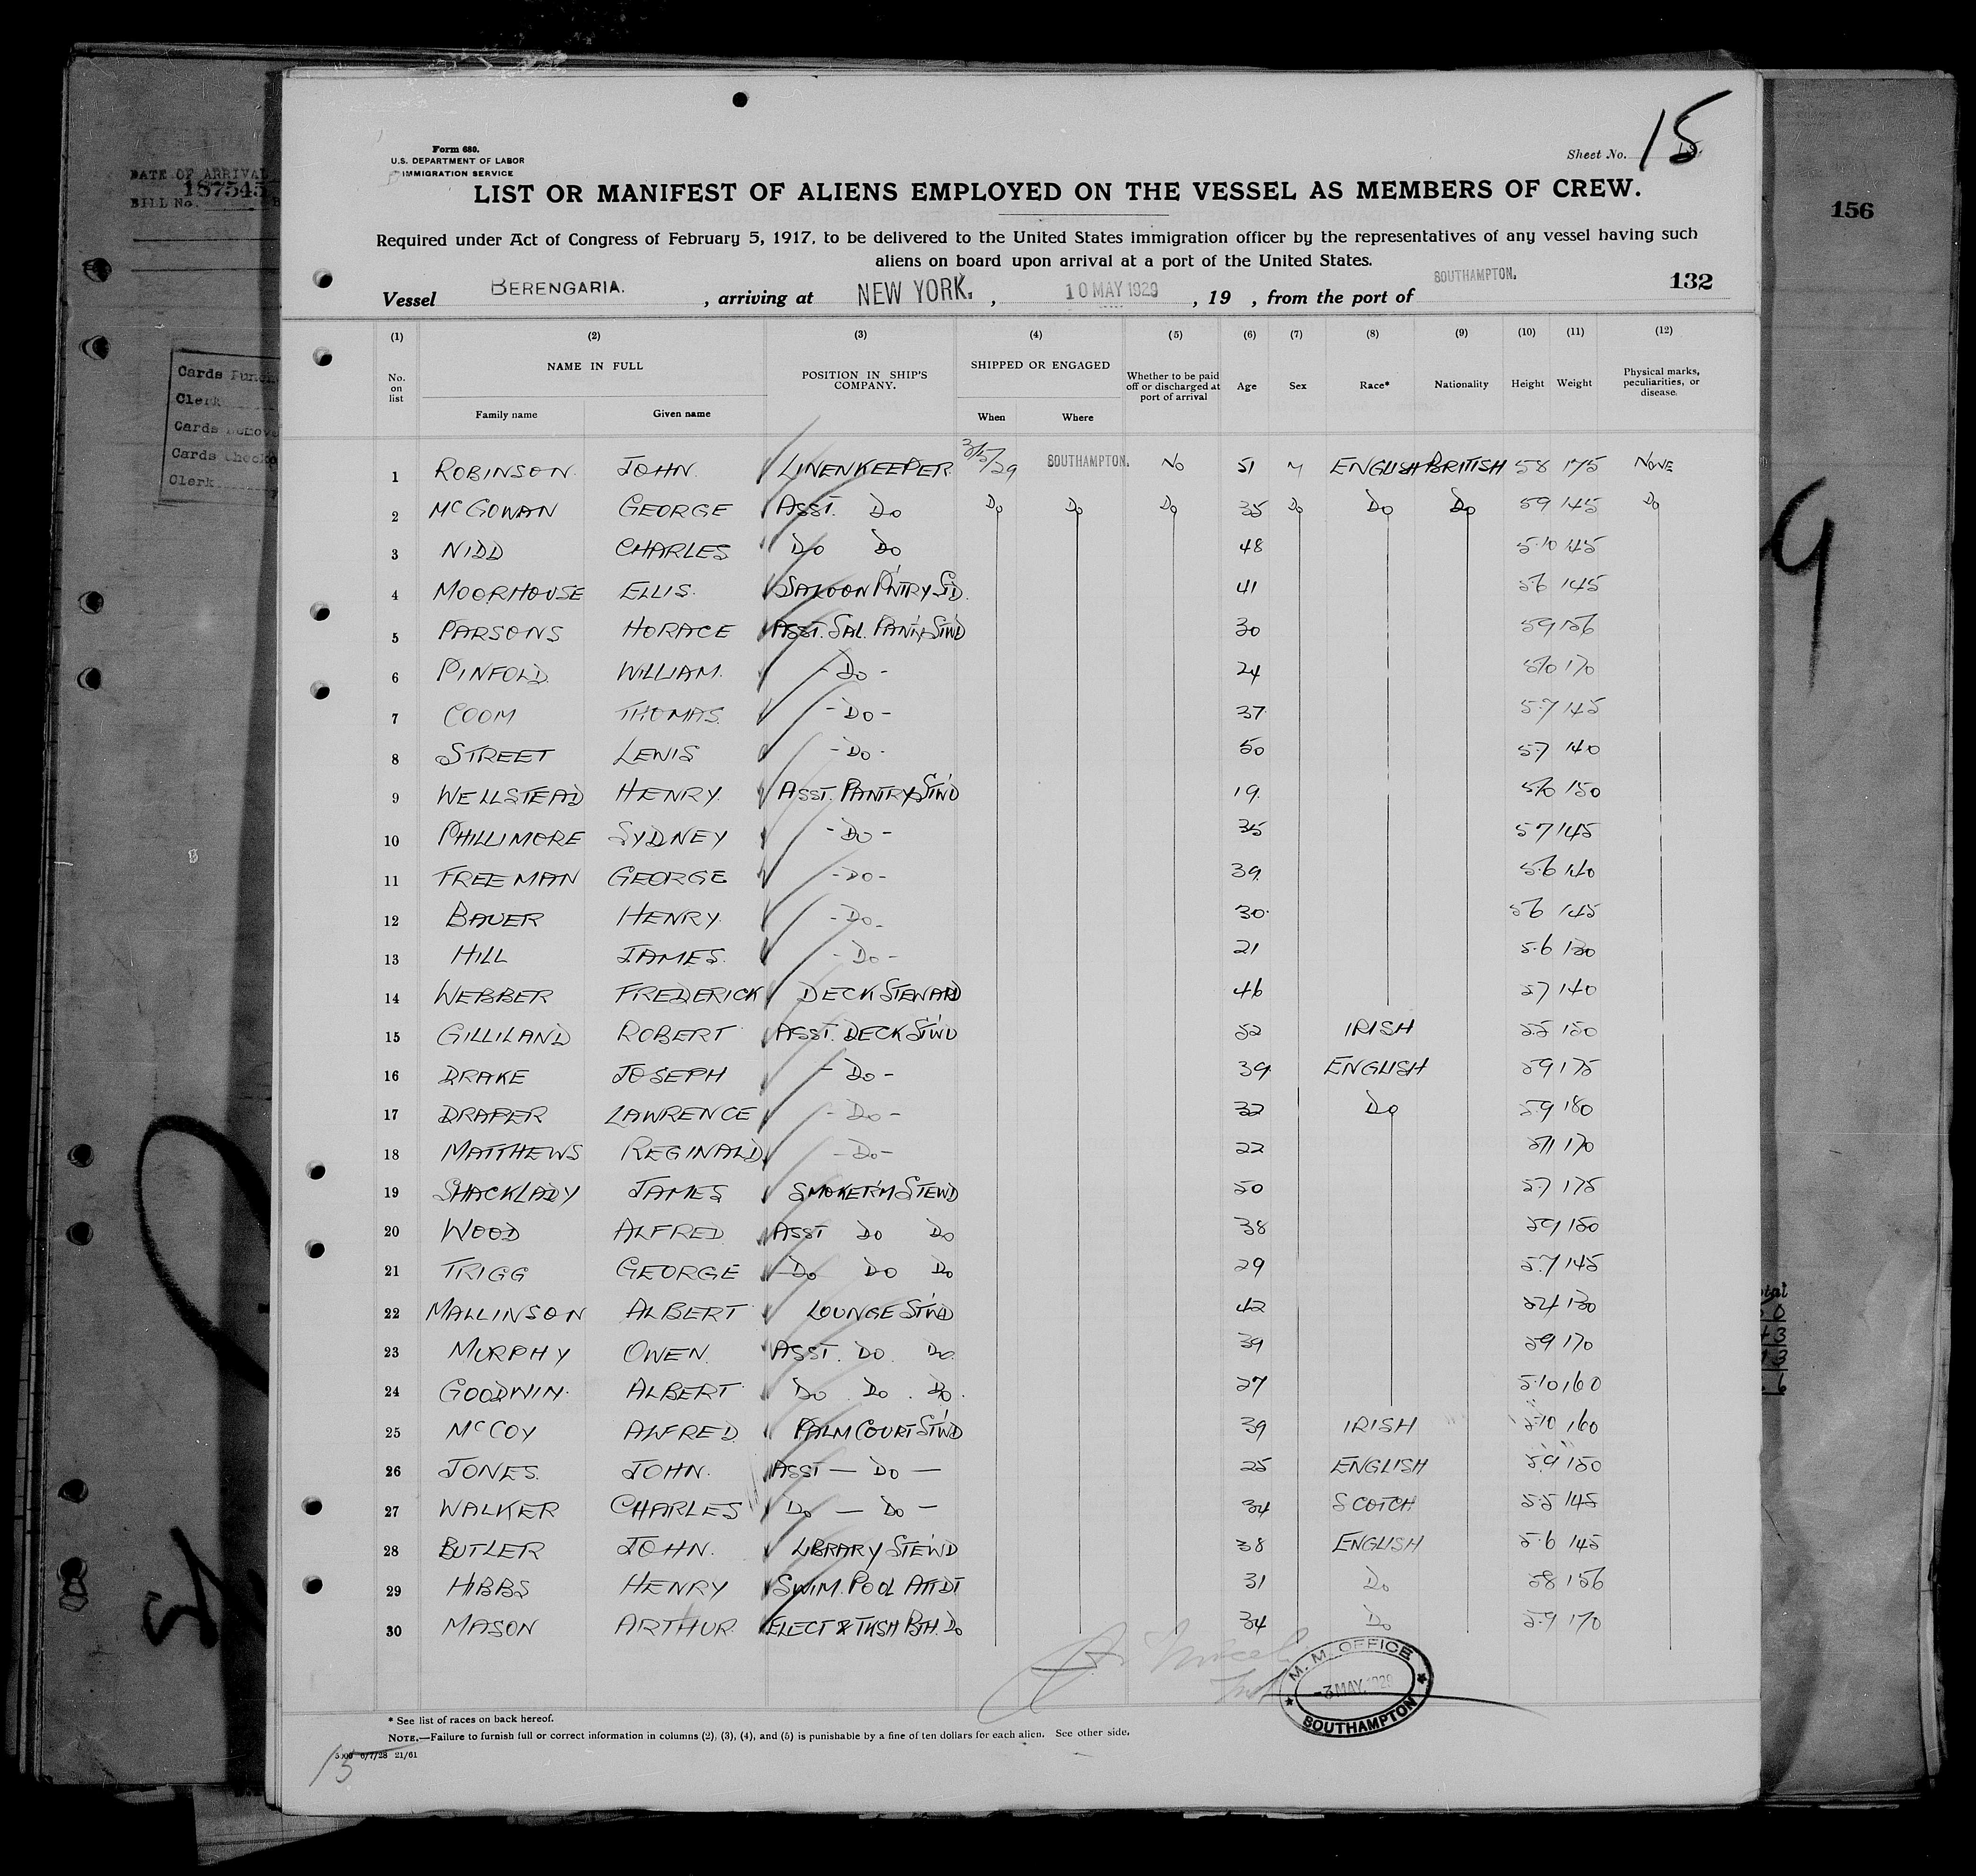 DATE OF ARRIVAL
187545
BILL No.
Cards
Clerk
Cards
Cards
Clerk
156
9
15
Form 680.
U.S. DEPARTMENT OF LABOR
IMMIGRATION SERVICE
Sheet No.
LIST OR MANIFEST OF ALIENS EMPLOYED ON THE VESSEL AS MEMBERS OF CREW.
Required under Act of Congress of February 5, 1917, to be delivered to the United States immigration officer by the representatives of any vessel having such
aliens on board upon arrival at a port of the United States.
Vessel BERENGARIA. , arriving at NEW YORK. , 10 MAY 1929 , 19 , from the port of SOUTHAMPTON. 132
(1) (2) (3) (4) (5) (6) (7) (8) (9) (10) (11) (12)
No. on list NAME IN FULL Family name Given name POSITION IN SHIP'S COMPANY. SHIPPED OR ENGAGED When Where Whether to be paid off or discharged at port of arrival Age Sex Race* Nationality Height Weight Physical marks, peculiarities, or disease.
1 ROBINSON JOHN. LINENKEEPER 3/5/29 SOUTHAMPTON. No 51 M ENGLISH BRITISH 58 175 NONE
2 McGOWAN GEORGE ASST. Do Do Do Do 35 Do Do Do 59 145 Do
3 NIDD CHARLES Do Do 48 5.10 145
4 MOORHOUSE ELLIS. SALOON P'NTRY S'D. 41 56 145
5 PARSONS HORACE ASST. SAL. PANTY STWD 30 59 156
6 PINFOLD WILLIAM. -Do- 24 5/10 170
7 COOM THOMAS. -Do- 37 5.7 145
8 STREET LEWIS -Do- 50 57 140
9 WELLSTEAD HENRY. ASST. PANTRY STWD 19 5/10 150
10 PHILLIMORE SYDNEY -Do- 35 57 145
11 FREEMAN GEORGE -Do- 39 5.6 140
12 BAUER HENRY. -Do- 30 56 145
13 HILL JAMES. -Do- 21 5.6 130
14 WEBBER FREDERICK DECK STEWARD 46 57 140
15 GILLILAND ROBERT ASST. DECK STWD 52 IRISH 55 150
16 DRAKE JOSEPH -Do- 39 ENGLISH 59 175
17 DRAPER LAWRENCE -Do- 32 Do 5.9 180
18 MATTHEWS REGINALD -Do- 22 5/11 170
19 SHACKLADY JAMES SMOKER'M STEWD 50 57 175
20 WOOD ALFRED ASST Do Do 38 59 150
21 TRIGG GEORGE Do Do Do 29 5.7 145
22 MALLINSON ALBERT LOUNGE STWD 42 54 130
23 MURPHY OWEN. ASST. Do. Do. 39 59 170
24 GOODWIN. ALBERT Do. Do. Do. 27 5.10 160
25 McCOY ALFRED. PALM COURT STWD 39 IRISH 5.10 160
26 JONES. JOHN. ASST — Do — 25 ENGLISH 5.9 150
27 WALKER CHARLES Do — Do — 34 SCOTCH 5.5 145
28 BUTLER JOHN. LIBRARY STEWD 38 ENGLISH 5.6 145
29 HIBBS HENRY SWIM. POOL ATTDT 31 Do 58 156
30 MASON ARTHUR. ELECT & TKSH BTH. Do 34 Do 5.9 170
M. M. OFFICE
-3 MAY. 1929
SOUTHAMPTON
* See list of races on back hereof.
NOTE.—Failure to furnish full or correct information in columns (2), (3), (4), and (5) is punishable by a fine of ten dollars for each alien. See other side.
6/7/28 21/61
15